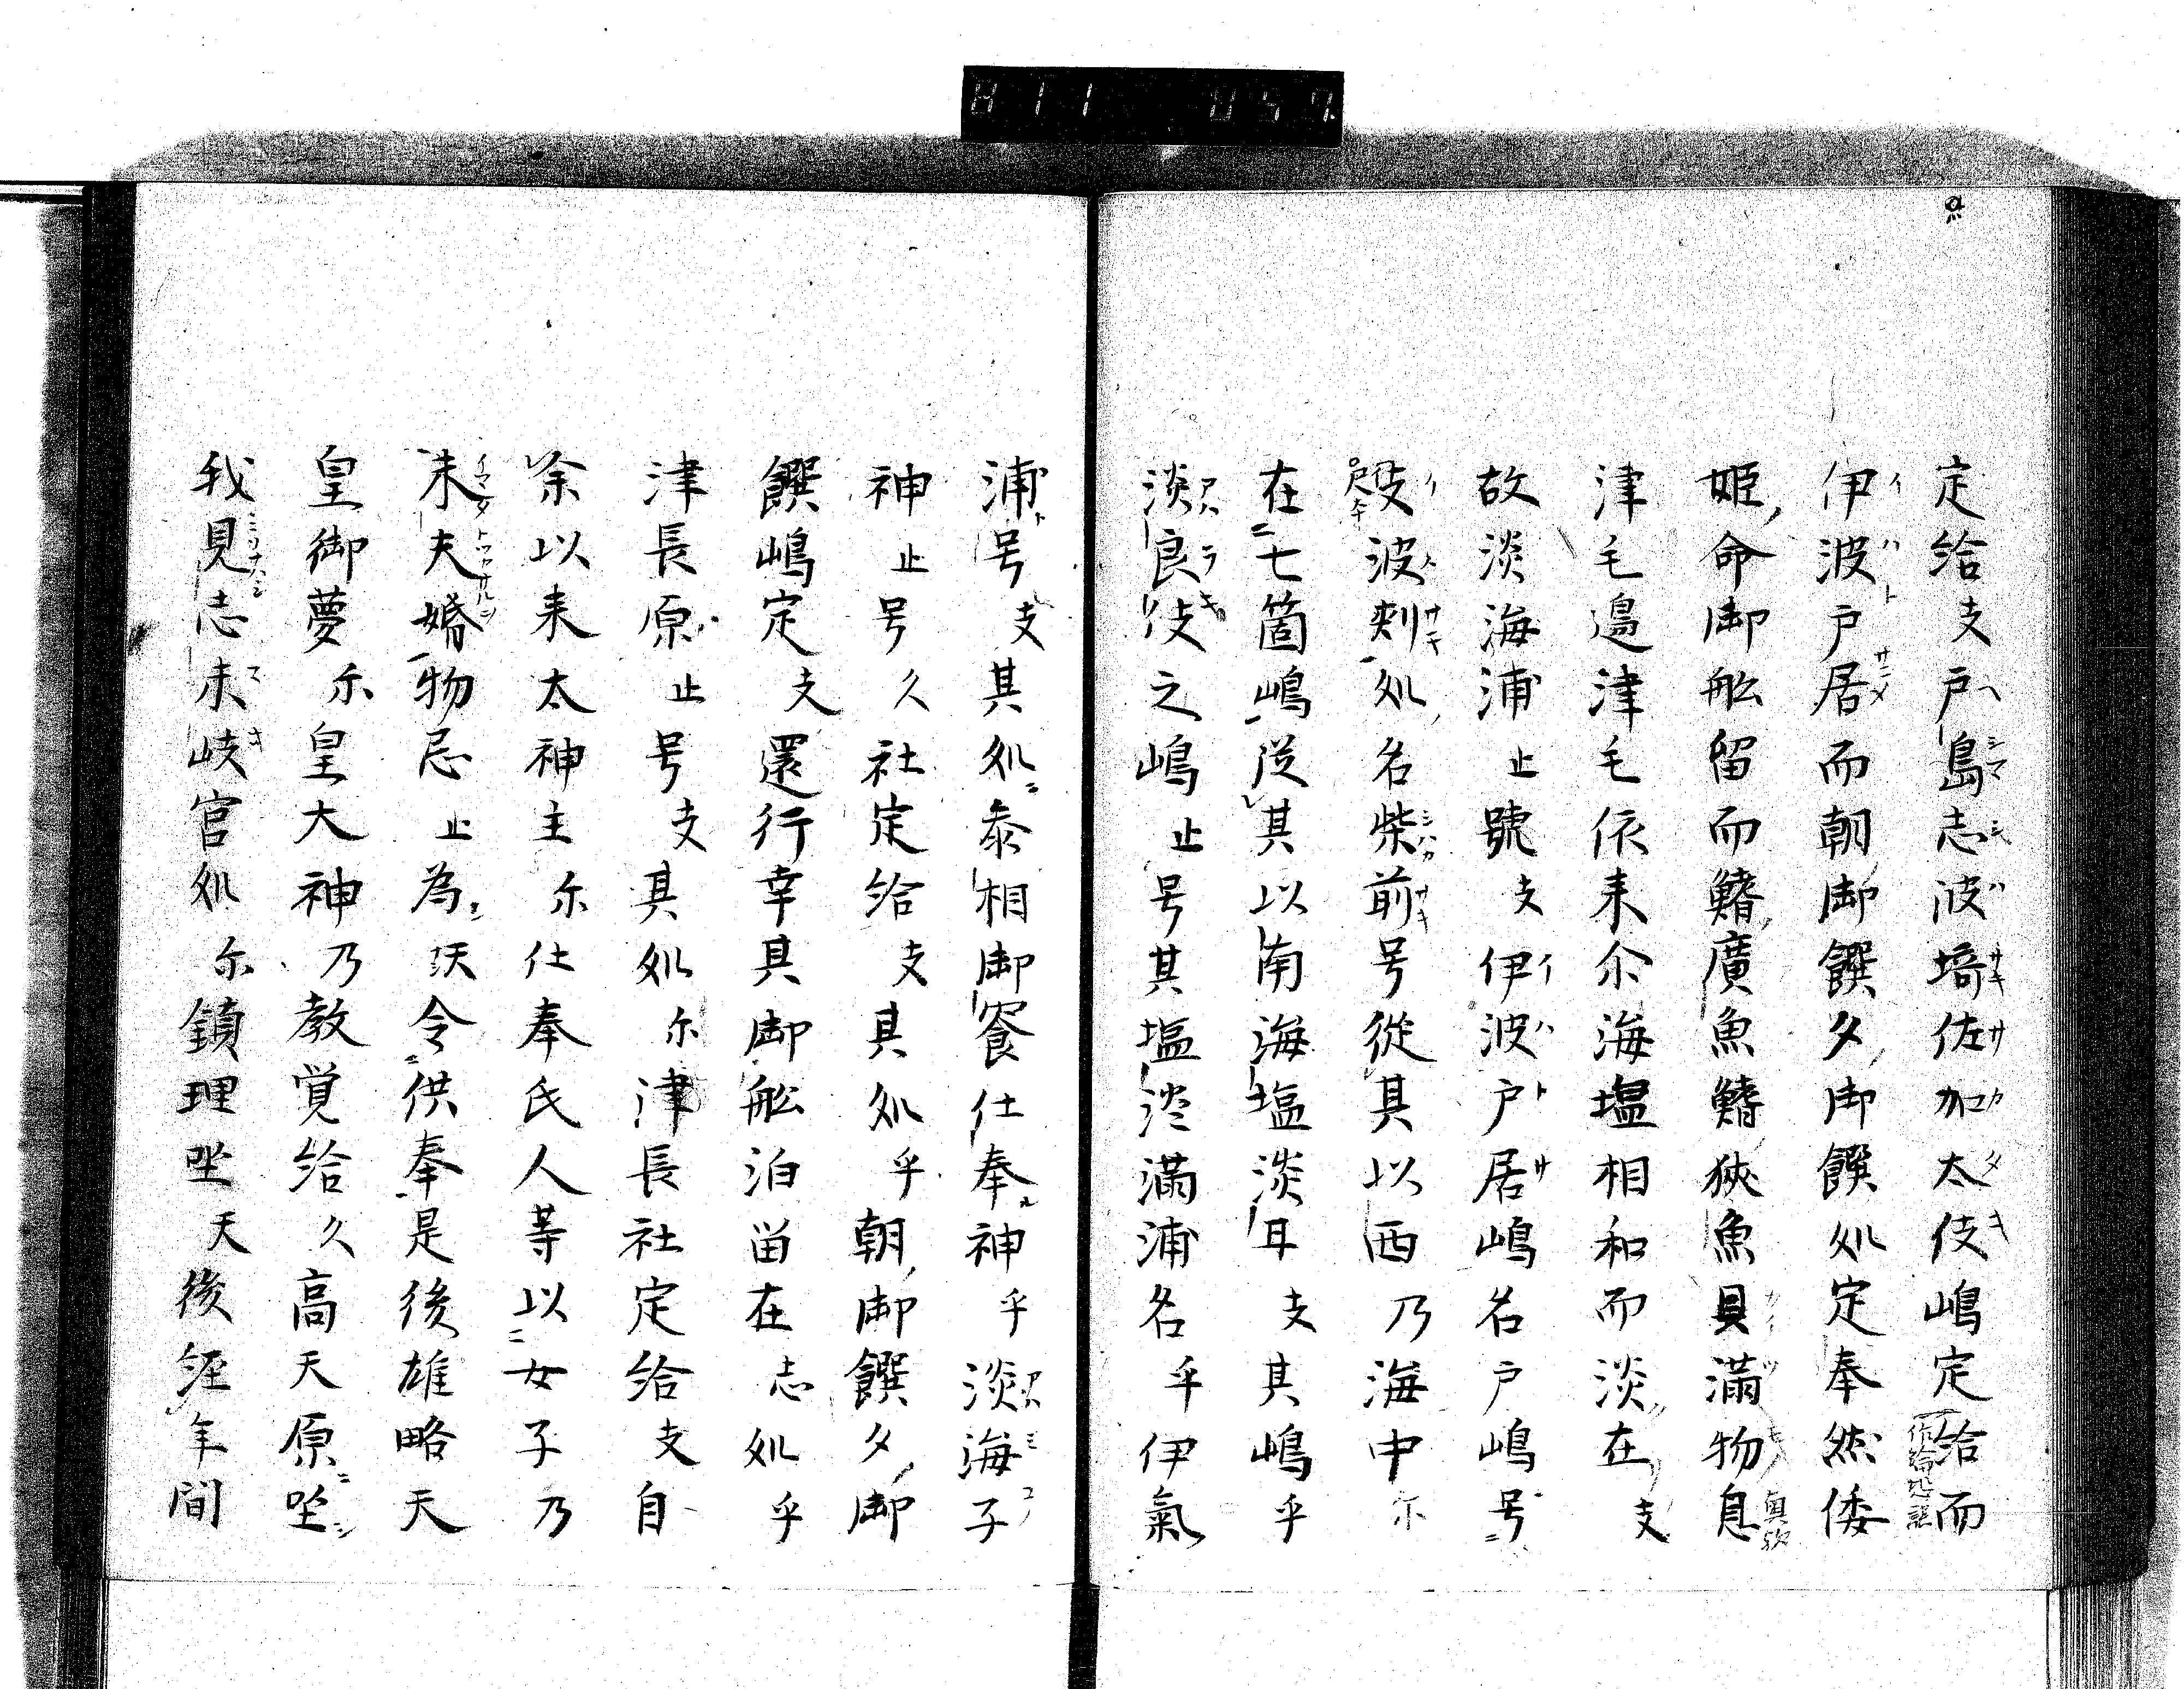 定給支戸島志波埼佐加太伎嶋定給而
伊波戸居而朝御饌夕御饌処定奉然倭
姫命御舩留而鰭廣魚鰭狹魚具滿物息
津毛邉津毛依来尓海塩相和而淡在支
故淡海浦止號支伊波戸居嶋名戸嶋号
波刾処名柴前号従其以西乃海中尓
在七箇嶋従其以南海塩淡耳支其嶋乎
淡良伎之嶋止号其塩淡滿浦名乎伊氣
浦号支其処参相御饗仕奉神乎淡海子
神止号久社定給支其処乎朝御饌夕御
饌嶋定支還行幸其御舩泊留在志処乎
津長原止号支其処尓津長社定給支自
余以来太神主尓仕奉氏人等以女子乃
未夫婚物忌止為天令供奉是後雄略天
皇御夢尓皇大神乃教覚給久高天原坐
我見志末岐宮処尓鎮理坐天後経年間